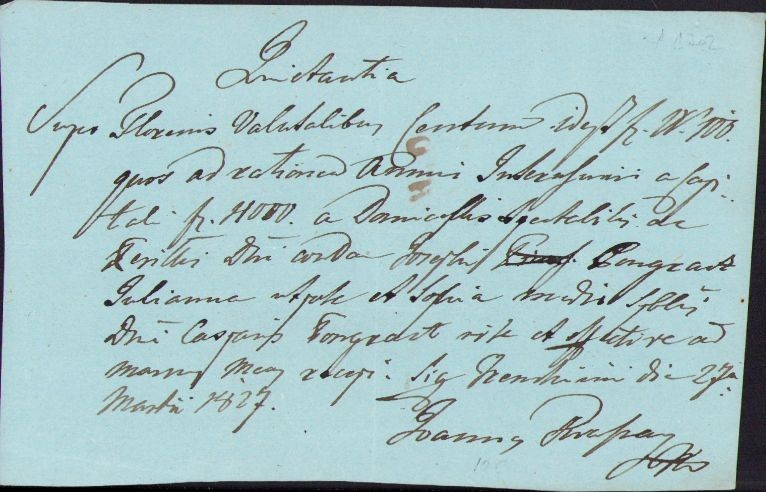 Quietantia
Super Florenis Valutalibus Centum idest f. W. 100.
quos ad rationem Annui Interusurii a Capi-
tali fl. 1000. a Domicellis Spectabilis ac
Dni condam Josephi Pongracz
Julianna utpote et Sophia medio Spblis
Dni Casparis Pongracz rite et effective ad
manus meas recepi. Sig die 27a
Martii 1827.
Joannes